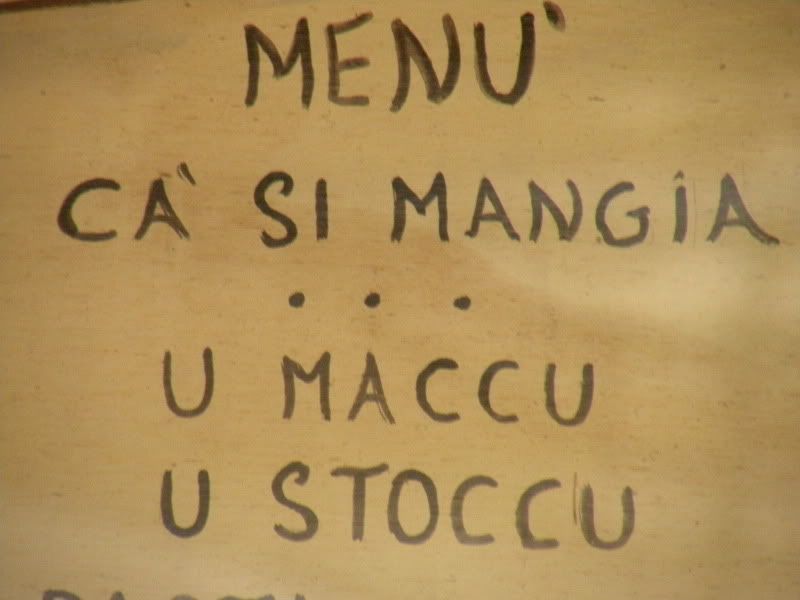 MENU'
CA' SI MANGIA
...
U MACCU
U STOCCU